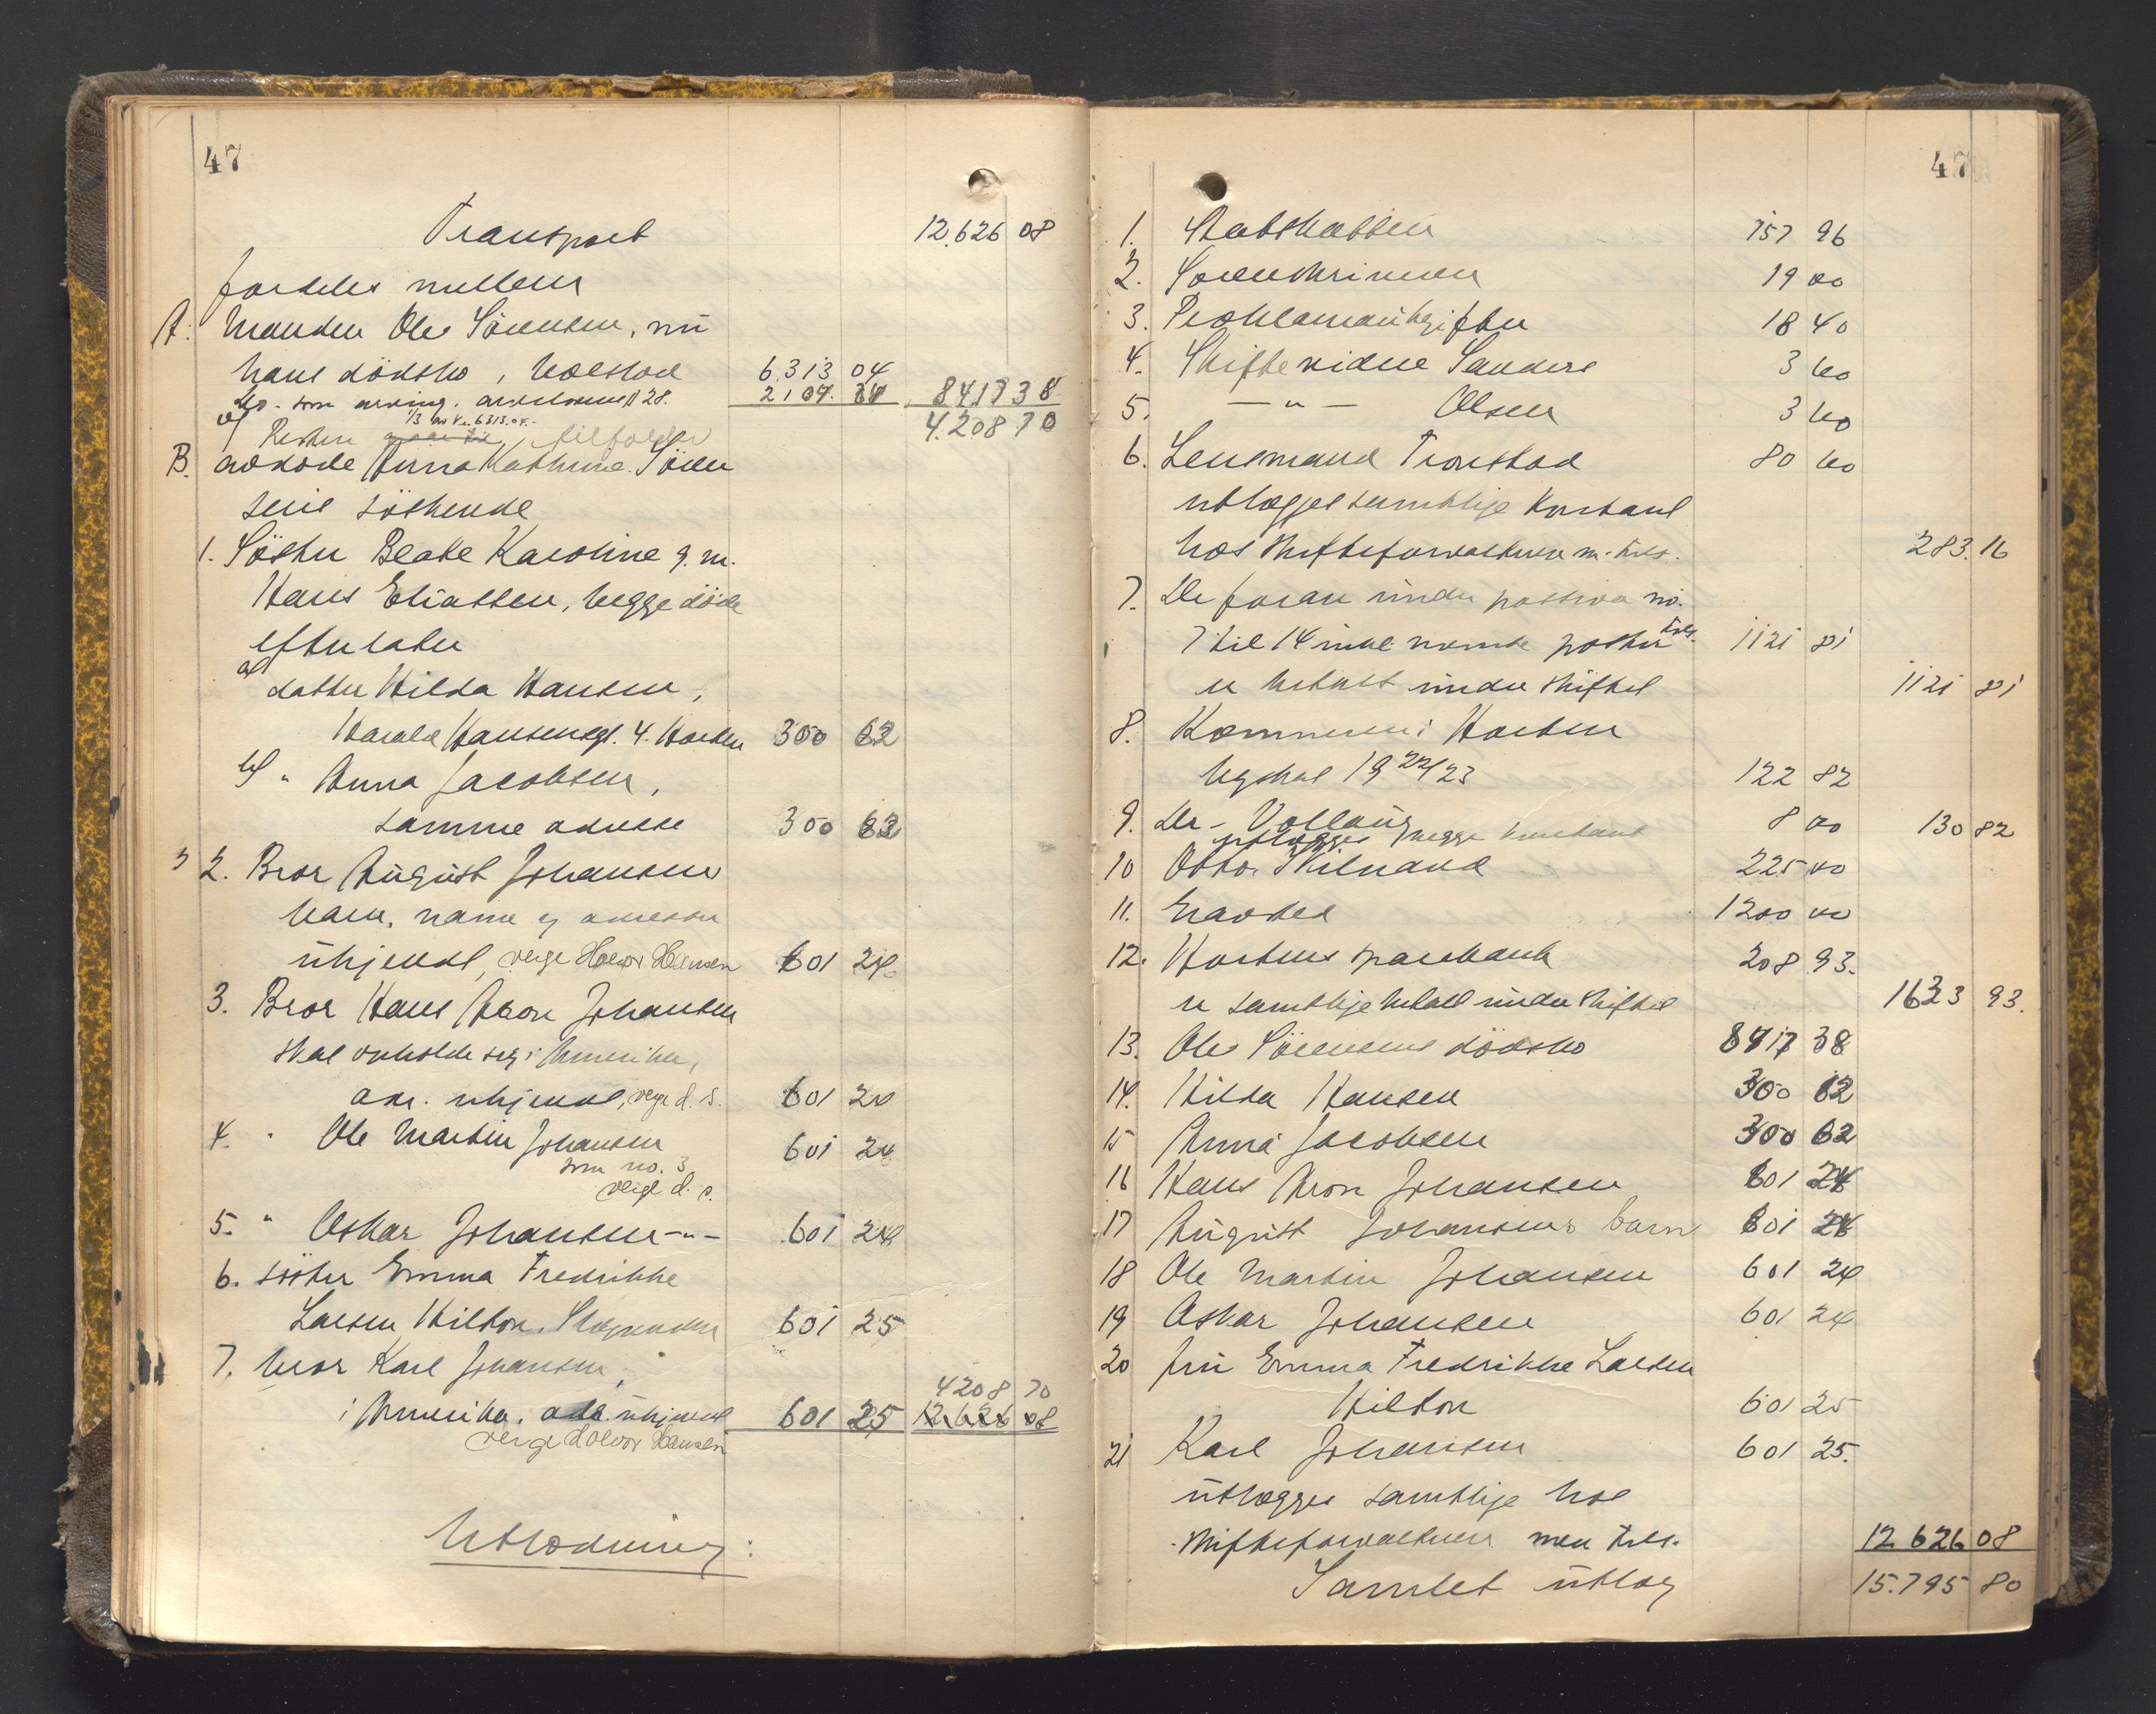 47
Transport 12.626 08
fordeles mellem
A: Manden Ole Sörensen, nu
hans dödsbo, 6.313 04
Do. som arving. 2104. 34 8417 38
1/3 av kr. 6313.04.- 4.208 70
Resten tilfalder
B. avdöde Anna Kathrine Sören
sens söskende
1. Söster Beate Karoline g. m.
Hans Eliassen, begge döde
efterlater
a/ datter Hilda Hansen,
Harald Hansens gt. 4. Horten 300 62
b/ " Anna Jacobsen,
samme adresse 300 62
2. Bror August Johansens
barn, navne og adresser
ukjendt, verge Halvor Hansen 601 24
3. Bror Hans Aron Johansen
skal opholde seg i Amerika,
adr. ukjendt, verge d. s. 601 24
4. " Ole Martin Johansen 601 24
som no. 3
verge d. s.
5. " Oskar Johansen -"- 601 24
6. söster Emma Fredrikke
Larsen Hilton, 601 25
7. bror Karl Johansen, 4208 70
i Amerika, adr. ukjendt 601 25 12.626 08
verge Halvor Hansen
Utlodning:
47
1. Statskassen 157 96
2. Sorenskriveren 19 00
3. Proklamautgifter 18 40
4. Skiftevidne Sanders 3 60
5. -"- Olsen 3 60
6. Lensmand Tronstad 80 60
utlægges samtlige kontant
hos skifteforvalteren m. tils. 283.16
7. De foran under passiva no.
7 til 14 inkl. nævnte poster tils. 1121 81
er betalt under skiftet 1121 81
8. Kæmneren i Horten
byskat 1922/23 122 82
9. Dr. Vollaug 8 00 130 82
utlægges begge kontant
10 Otto Skilnand 225 00
11. Gravsted 1200 00
12. Hortens sparebank 208 93.
er samtlige betalt under skiftet 1633 93.
13. Ole Sörensens dödsbo 8417 38
14. Hilda Hansen 300 62
15 Anna Jacobsen 300 62
16 Hans Aron Johansen 601 24
17 August Johansens barn 601 24
18 Ole Martin Johansen 601 24
19 Oskar Johansen 601 24
20 fru Emma Fredrikke Larsen
Hilton 601 25
21 Karl Johansen 601 25.
utlægges samtlige hos
skifteforvalteren med tils. 12 626 08
Samlet utlæg 15.795 80